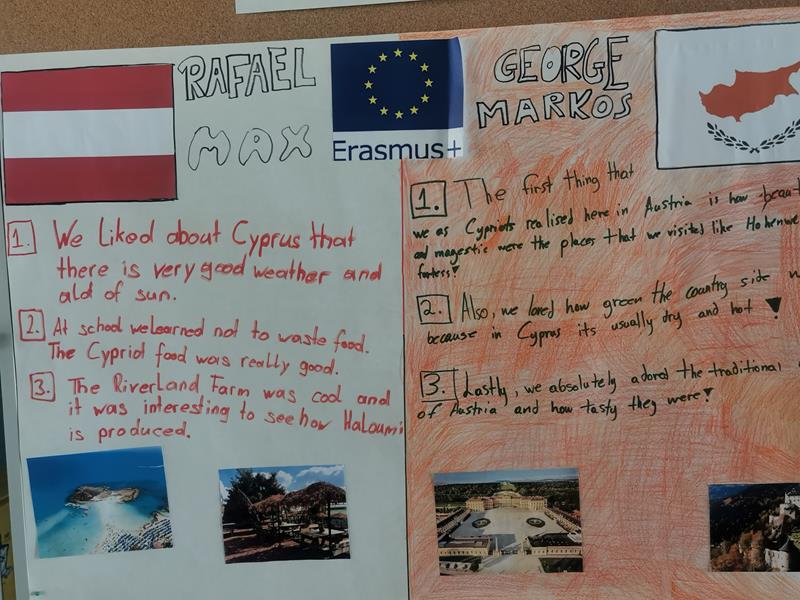 RAFAEL
MAX
Erasmus+
1. We Liked about Cyprus that
there is very good weather and
alot of sun.
2. At school welearned not to waste food.
The Cypriot food was really good.
3. The Riverland Farm was cool and
it was interesting to see how Haloumi
is produced.
GEORGE
MARKOS
1. The first thing that
we as Cypriots realised here in Austria is how beaut
and magestic were the places that we visited like Hohenwe
fortess!
2. Also, we loved how green the country side
because in Cyprus its usually dry and hot!
3. Lastly, we absolutely adored the traditional
of Austria and how tasty they were!